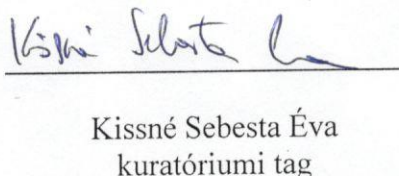 Kissné Sebesta Éva
Kissné Sebesta Éva
kuratóriumi tag